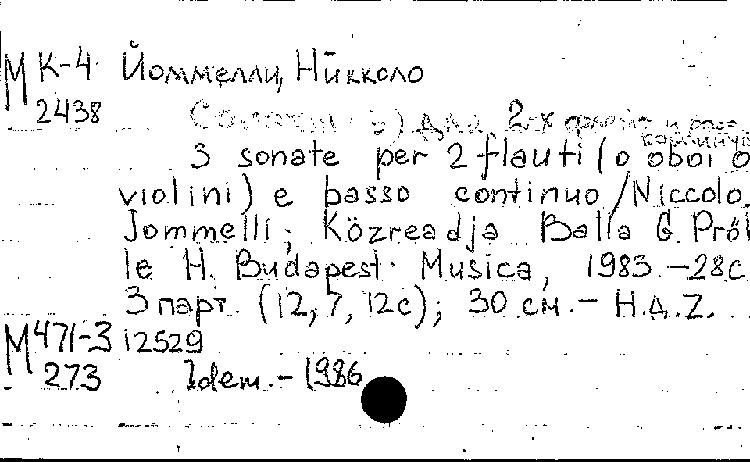 М К-4 Йоммелли, Никколо
2438 Сонаты (3) для 2-х флейт и бассо
континуо
3 sonate per 2 flauti (o oboi o
violini) e basso continuo / Niccolo
Jommelli; Közreadja Balla G. Pről
le H. Budapest: Musica, 1983. – 28c
3 парт. (12, 7, 12c); 30 см. – Н.д. Z.
М 471-3 12529
273 Idem. – 1986